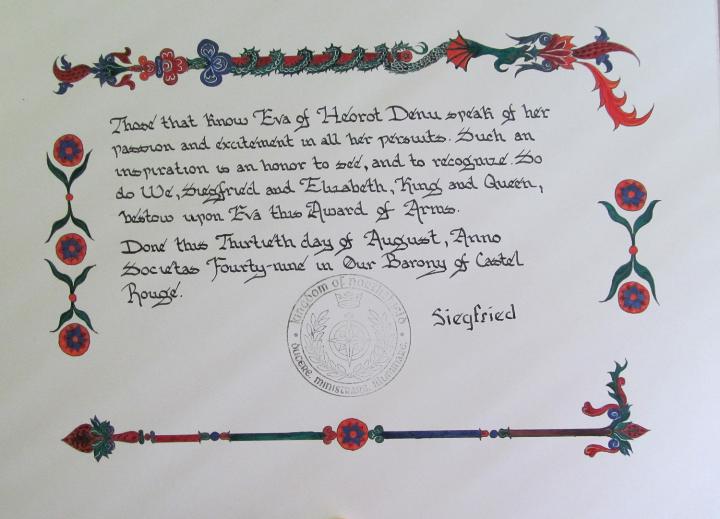 Those that know Eva of Heorot Denu speak of her
passion and excitement in all her persuits. Such an
inspiration is an honor to see, and to recognize. So
do We, Siegfried and Elizabeth, King and Queen,
bestow upon Eva this Award of Arms.
Done this Thirtieth day of August, Anno
Societas Fourty-nine in Our Barony of Castel
Rouge.
Siegfried
Kingdom of Northshield
Ducere, Ministrare, Illuminare